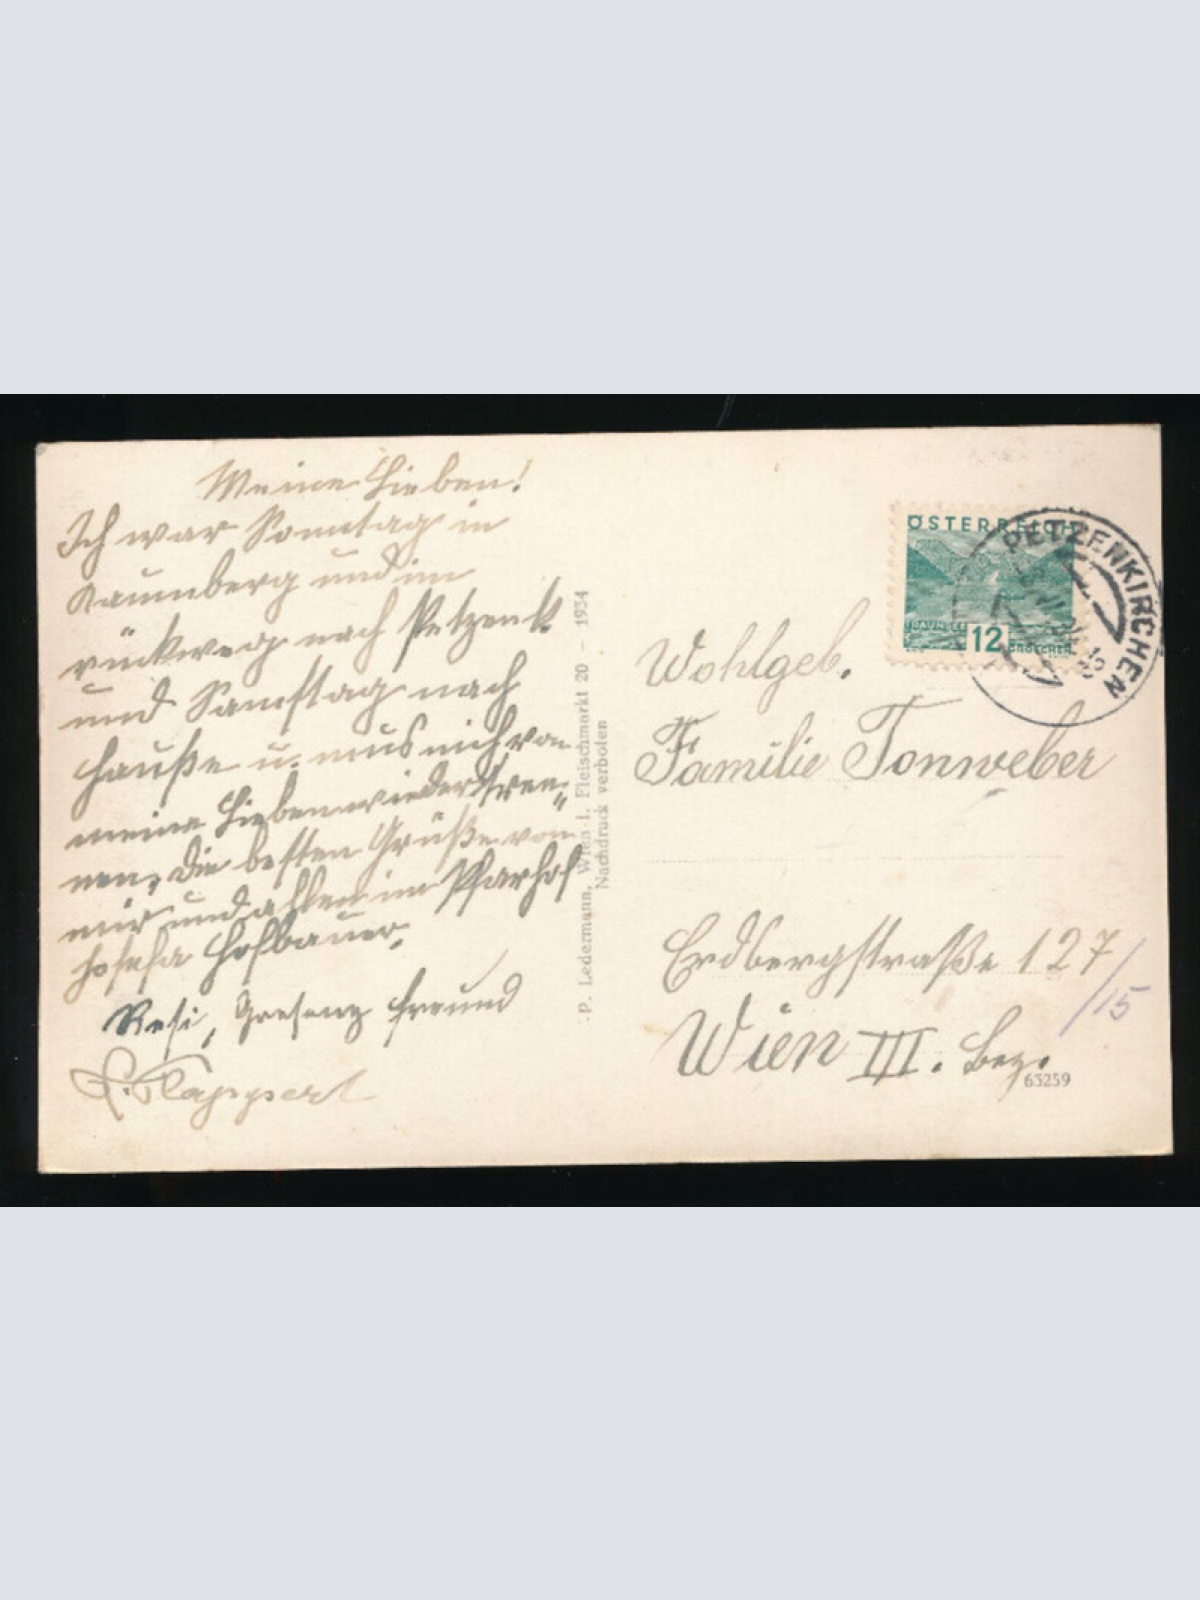 Meine Lieben!
Ich war Sonntag in
Kaumberg und im
rückweg nach Petzenk.
und Samstag nach
Hauße u. mus mich von
meine Lieben wieder tren„
nen, die besten Grüße von
mir und allen im Pfarhof
Josefa Hofbauer.
Resi, Freund
P. Ledermann, Wien I, Fleischmarkt 20 – 1934
Nachdruck verboten
ÖSTERREICH
TRAUNSEE
12
GROSCHEN
PETZENKIRCHEN
Wohlgeb.
Familie Tonweber
Erdbergstraße 127/15
Wien III. Bez.
63259